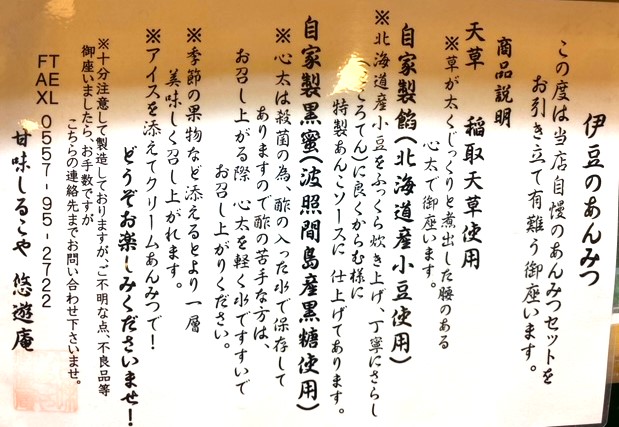 伊豆のあんみつ
この度は当店自慢のあんみつセットを
お引き立て有難う御座います。
商品説明
天草 稲取天草使用
※草が太くじっくりと煮出した腰のある
心太で御座います。
自家製餡(北海道産小豆使用)
※北海道産小豆をふっくら炊き上げ、丁寧にさらし
ころてん)に良くからむ様に
特製あんこソースに 仕上げてあります。
自家製黒蜜(波照間島産黒糖使用)
※心太は殺菌の為、酢の入った水で保存して
ありますので酢の苦手な方は、
お召し上がる際 心太を軽く水ですすいで
お召し上がりください。
※季節の果物など添えるとより一層
美味しく召し上がれます。
※アイスを添えてクリームあんみつで!
どうぞお楽しみくださいませ!
※十分注意して製造しておりますが、ご不明な点、不良品等
御座いましたら、お手数ですが
こちらの連絡先までお問い合わせ下さいませ。
TEL
FAX 0557-95-2722
甘味しるこや 悠遊庵